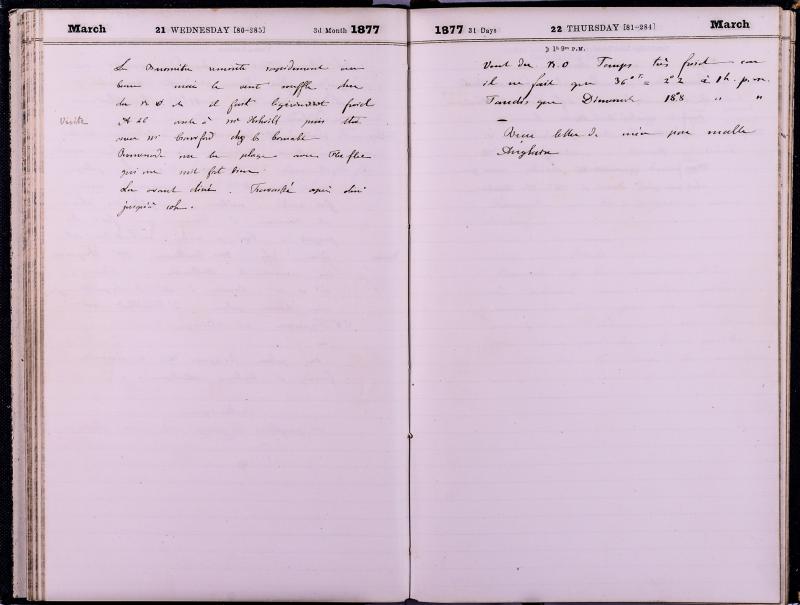 March 21 WEDNESDAY [80-285] 3d Month 1877
Le Baromètre remonte rapidement au
beau mais le vent souffle dur
du N O & il fait légèrement froid
Visite
A 2h visite à Mr puis
vue Mr Crawford chez le Consul
Promenade sur la plage avec
qui me fait bien
Lu avant diné. Travaillé après diné
jusqu'à 10h.
1877 31 Days 22 THURSDAY [81-284] March
☽ 1h 9m P.M.
Vent du N.O Temps très froid car
il ne fait que 36°F = 2°2 à 1h. p.m.
Tandis que Dimanche 18°8 " "
Reçu lettre de mère par malle
Anglaise